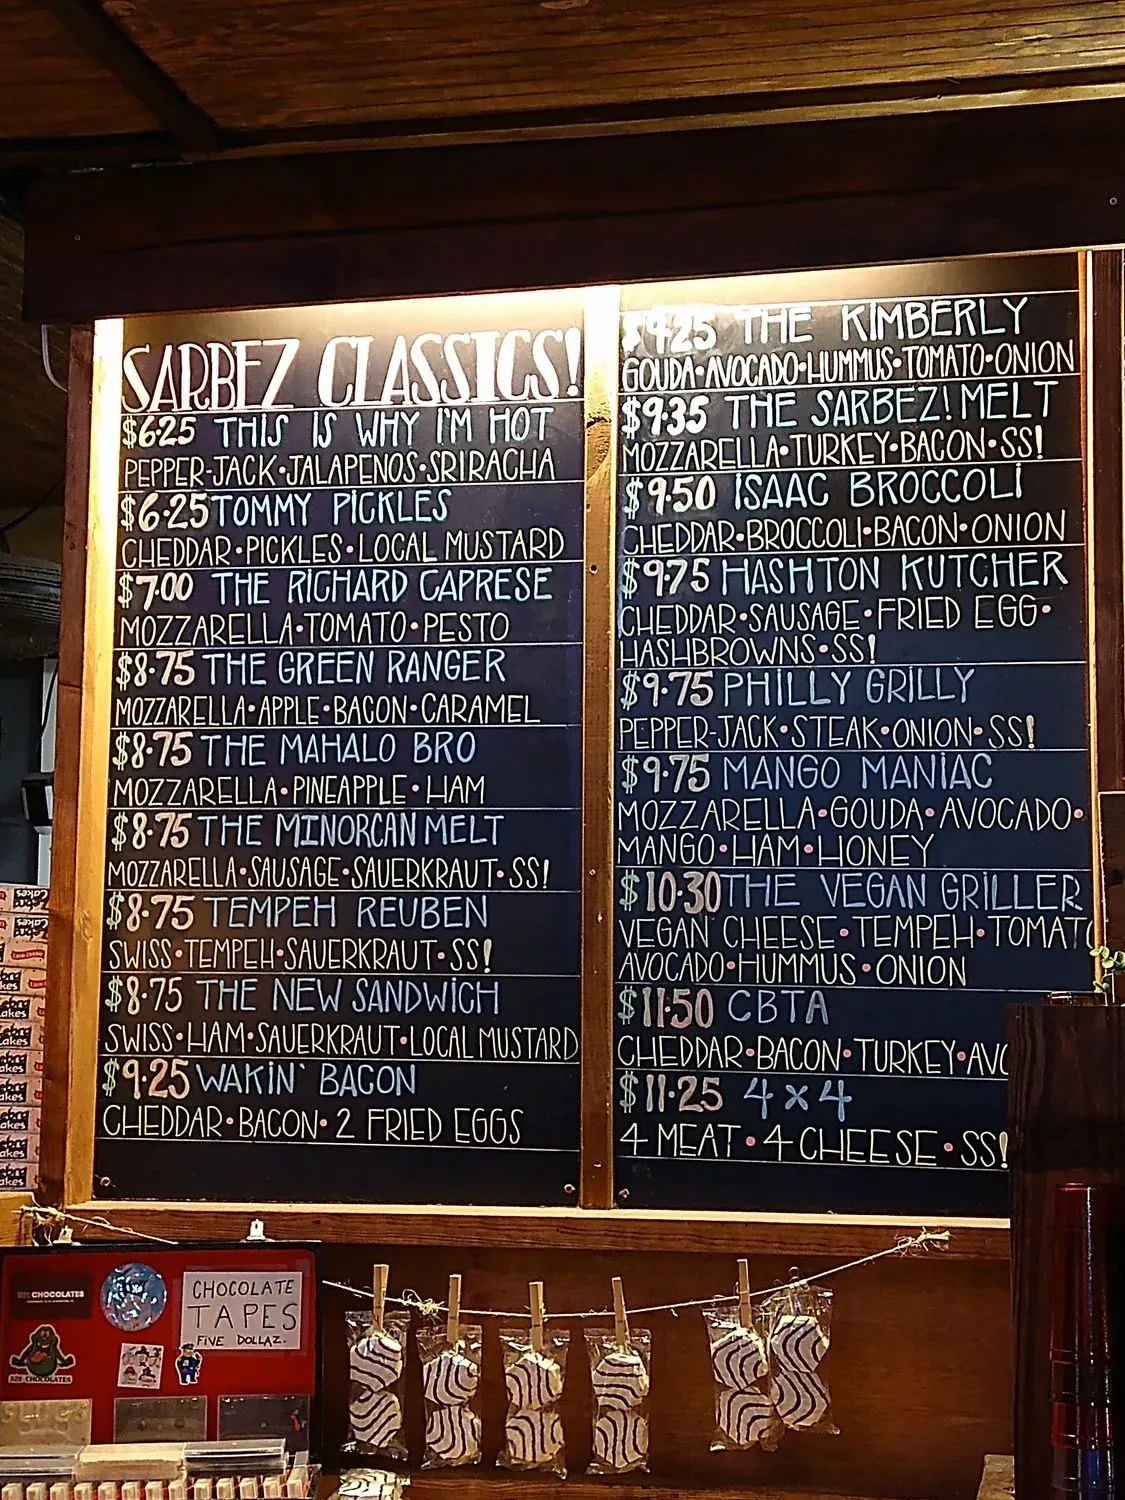 SARBEZ CLASSICS!
$6.25 THIS IS WHY I'M HOT
PEPPER-JACK•JALAPENOS•SRIRACHA
$6.25 TOMMY PICKLES
CHEDDAR•PICKLES•LOCAL MUSTARD
$7.00 THE RICHARD CAPRESE
MOZZARELLA•TOMATO•PESTO
$8.75 THE GREEN RANGER
MOZZARELLA•APPLE•BACON•CARAMEL
$8.75 THE MAHALO BRO
MOZZARELLA•PINEAPPLE•HAM
$8.75 THE MINORCAN MELT
MOZZARELLA•SAUSAGE•SAUERKRAUT•SS!
$8.75 TEMPEH REUBEN
SWISS•TEMPEH•SAUERKRAUT•SS!
$8.75 THE NEW SANDWICH
SWISS•HAM•SAUERKRAUT•LOCAL MUSTARD
$9.25 WAKIN' BACON
CHEDDAR•BACON•2 FRIED EGGS
$9.25 THE KIMBERLY
GOUDA•AVOCADO•HUMMUS•TOMATO•ONION
$9.35 THE SARBEZ! MELT
MOZZARELLA•TURKEY•BACON•SS!
$9.50 ISAAC BROCCOLI
CHEDDAR•BROCCOLI•BACON•ONION
$9.75 HASHTON KUTCHER
CHEDDAR•SAUSAGE•FRIED EGG•
HASHBROWNS•SS!
$9.75 PHILLY GRILLY
PEPPER-JACK•STEAK•ONION•SS!
$9.75 MANGO MANIAC
MOZZARELLA•GOUDA•AVOCADO•
MANGO•HAM•HONEY
$10.30 THE VEGAN GRILLER
VEGAN CHEESE•TEMPEH•TOMATO
AVOCADO•HUMMUS•ONION
$11.50 CBTA
CHEDDAR•BACON•TURKEY•AVO
$11.25 4x4
4 MEAT•4 CHEESE•SS!
CHOCOLATE
TAPES
FIVE DOLLAZ.
CHOCOLATES
CHOCOLATES
Zebra
Cakes